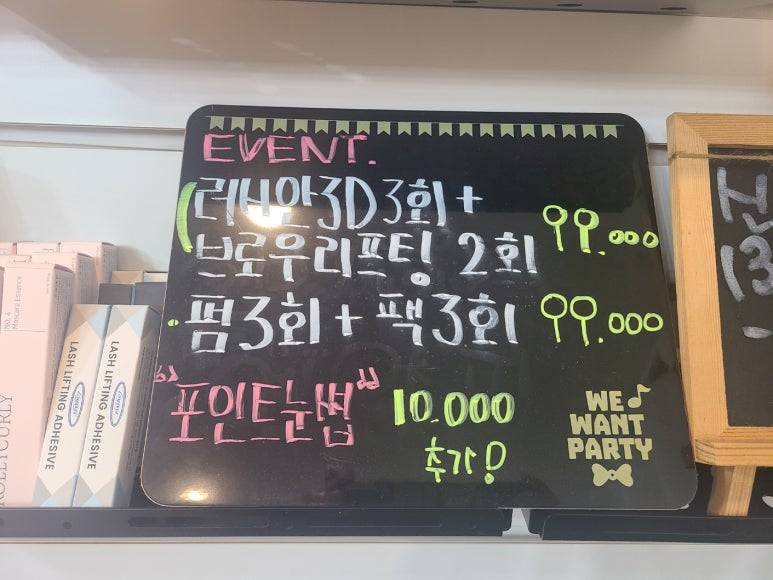 EVENT.
러브안3D 3회 +
브로우리프팅 2회 99.000
펌3회 + 팩3회 99.000
"포인트눈썹" 10.000
추가!
WE
WANT
PARTY
LASH LIFTING ADHESIVE
LASH LIFTING ADHESIVE
NO. 4
Mascara Essence